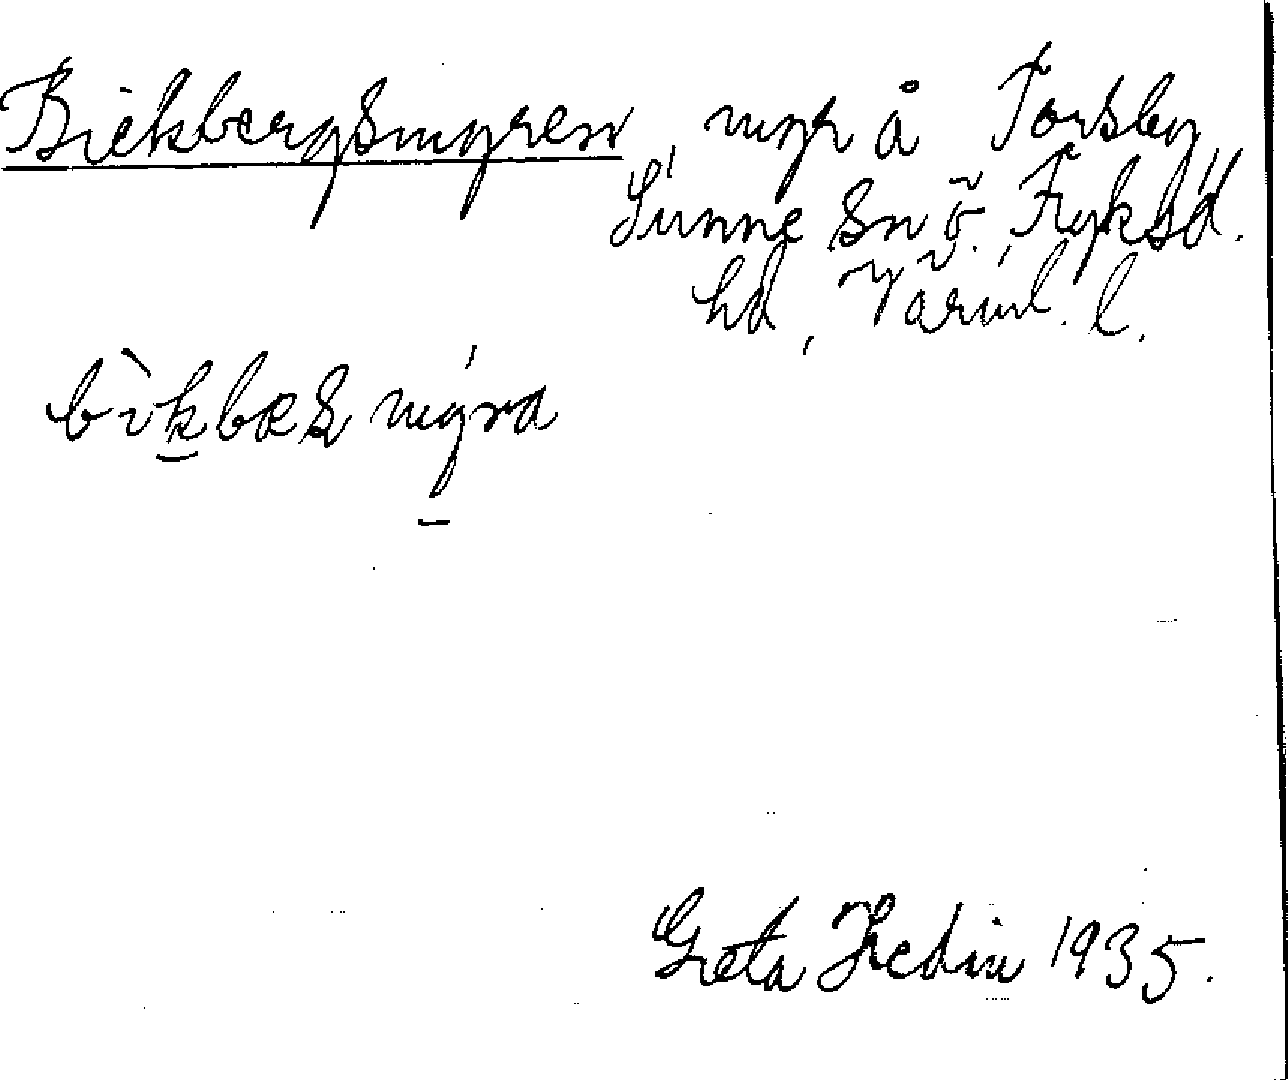 Bickbergsmyren, myr å Torsby,
Sunne sn ö., Fryksd.
hd, Värml. l.
bìkbæs mýra
Greta Hedin 1935.